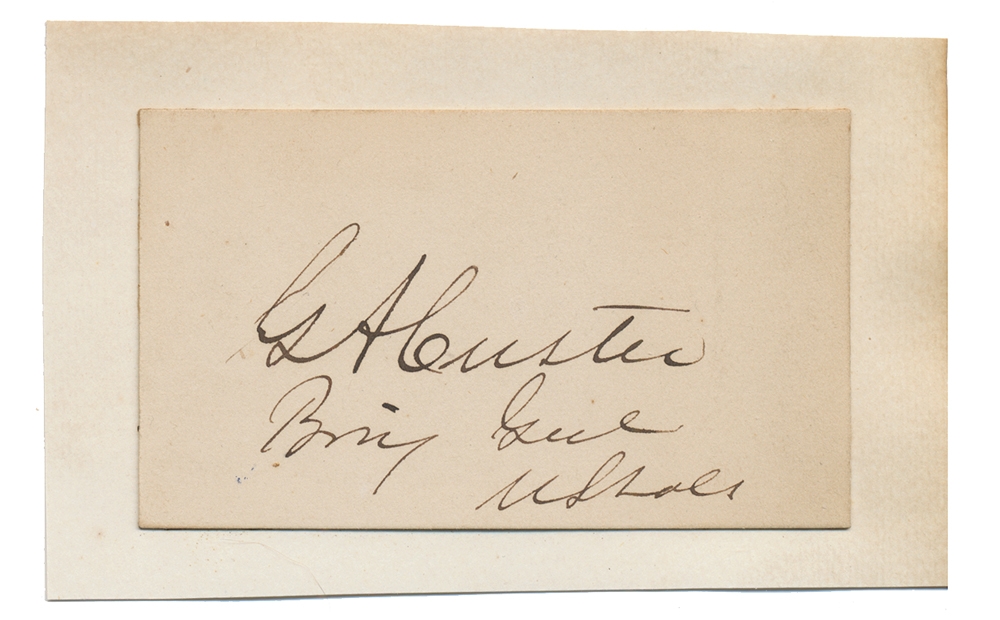 G A Custer
Brig Genl
US Vols